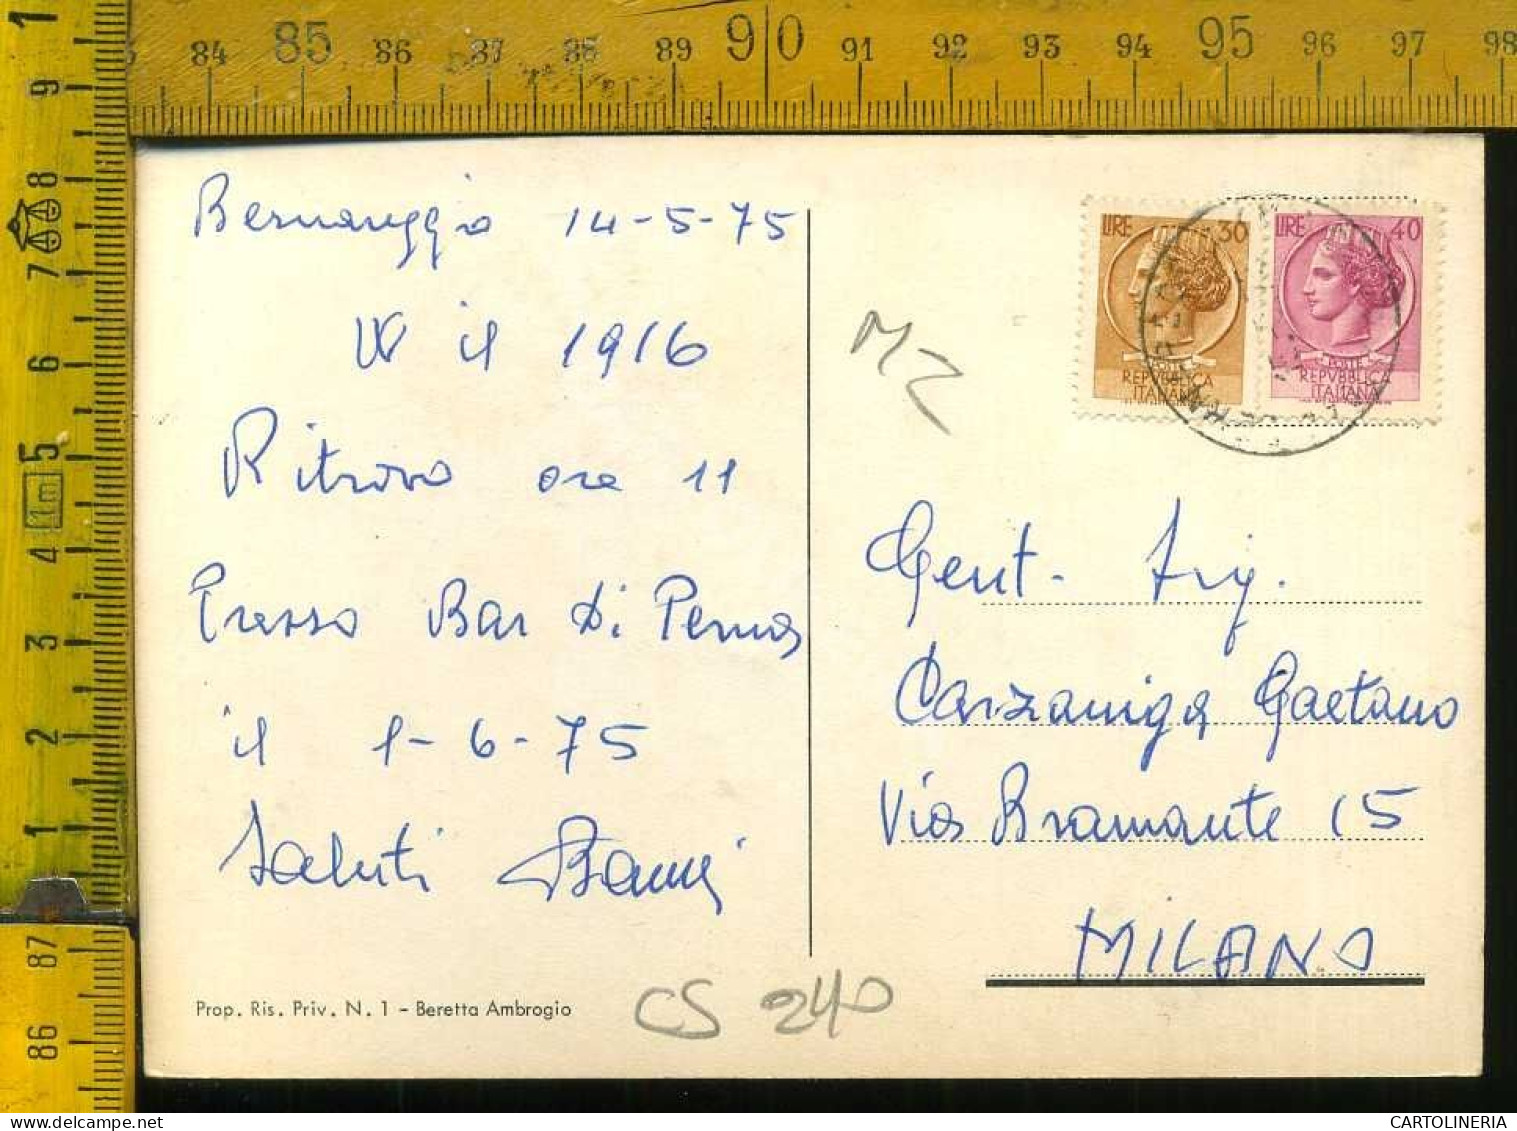 84 85 86 87 88 89 90 91 92 93 94 95 96 97 98
1 9 8 7 6 5 1m 4 3 2 1 87 86
Bernareggio 14-5-75
W il 1916
Ritrovo ore 11
Presso Bar di Perna
il 1-6-75
Saluti
Prop. Ris. Priv. N. 1 - Beretta Ambrogio
CS 240
MZ
LIRE 30
POSTE
REPVBBLICA
ITALIANA
LIRE 40
POSTE
REPVBBLICA
ITALIANA
Gent. Sig.
Carzaniga Gaetano
Via Bramante 15
MILANO
CARTOLINERIA